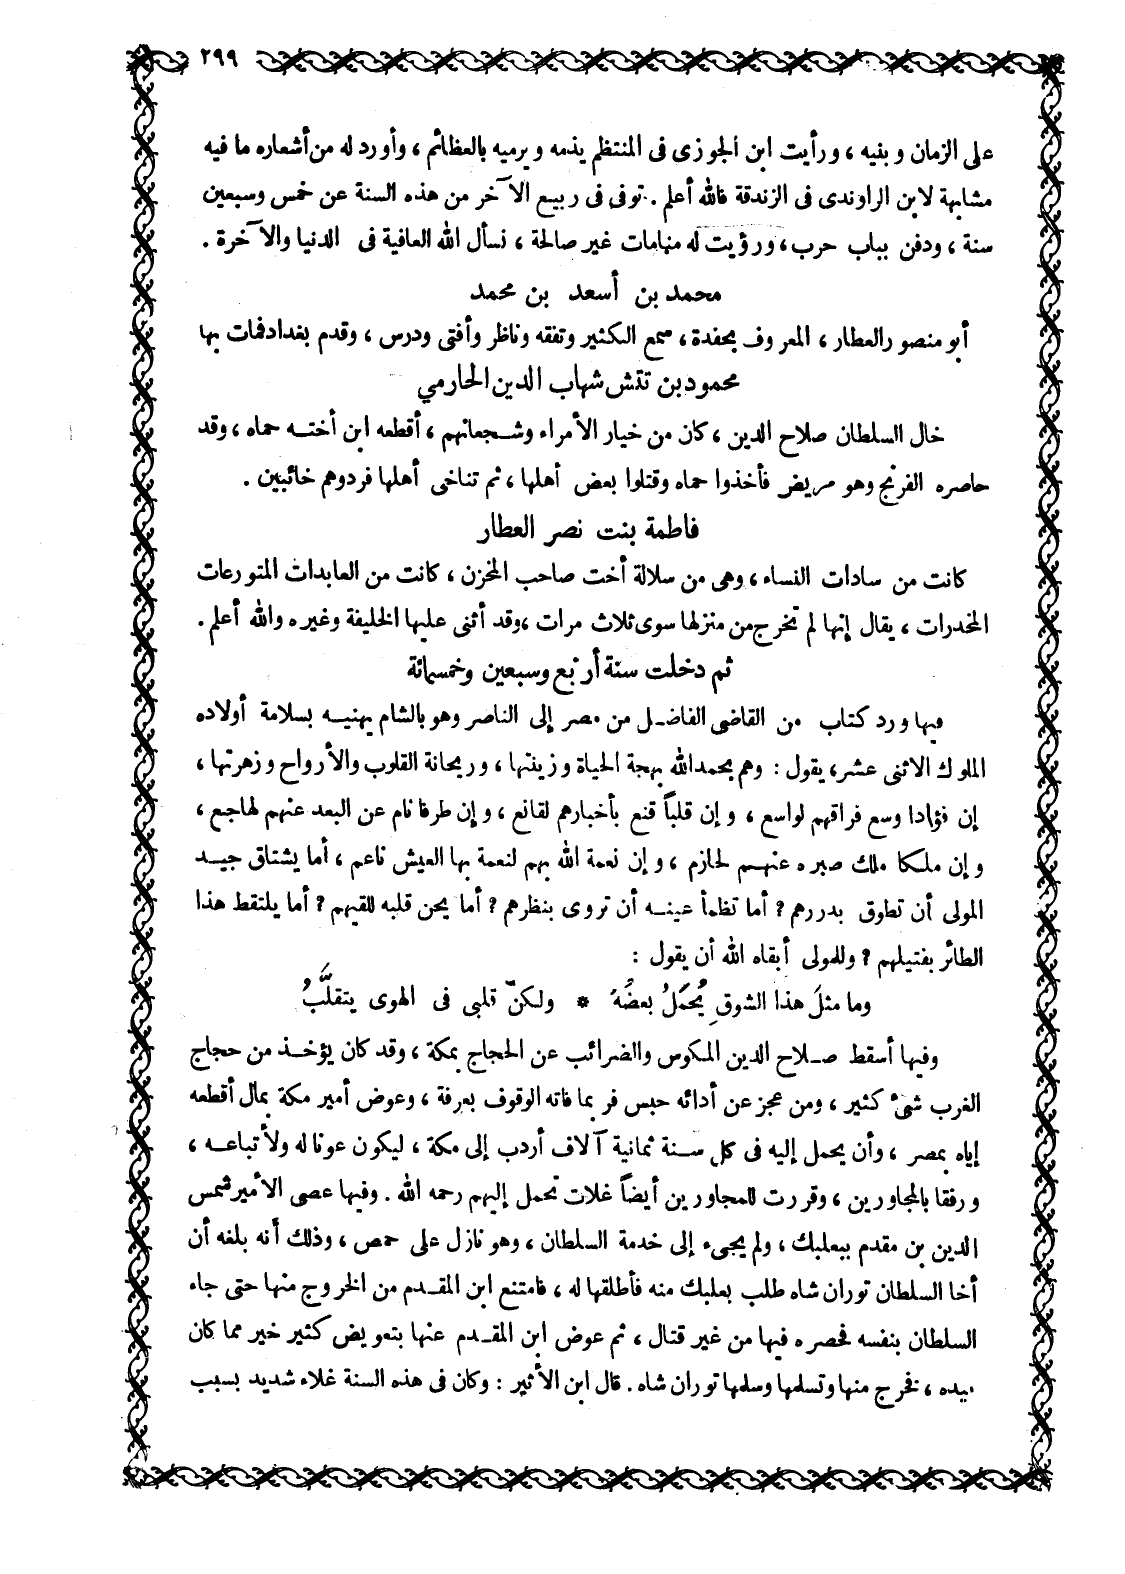 ٢٩٩
على الزمان وبنيه ، ورأيت ابن الجوزى فى المنتظم يذمه ويرميه بالعظائم ، وأورد له من أشعاره ما فيه
مشابهة لابن الراوندى فى الزندقة فالله أعلم . توفى فى ربيع الآخر من هذه السنة عن خمس وسبعين
سنة ، ودفن بباب حرب ، ورؤيت له منامات غير صالحة ، نسأل الله العافية فى الدنيا والآخرة .
محمد بن أسعد بن محمد
أبو منصور العطار ، المعروف بحفدة ، سمع الكثير وتفقه وناظر وأفتى ودرس ، وقدم بغداد فمات بها
محمود بن تتش شهاب الدين الحارمي
خال السلطان صلاح الدين ، كان من خيار الأمراء وشجعانهم ، أقطعه ابن أخته حماه ، وقد
حاصره الفرنج وهو مريض فأخذوا حماه وقتلوا بعض أهلها ، ثم تناخى أهلها فردوهم خائبين .
فاطمة بنت نصر العطار
كانت من سادات النساء ، وهى من سلالة أخت صاحب المخزن ، كانت من العابدات المتورعات
المخدرات ، يقال إنها لم تخرج من منزلها سوى ثلاث مرات ، وقد أثنى عليها الخليفة وغيره والله أعلم .
ثم دخلت سنة أربع وسبعين وخمسمائة
فيها ورد كتاب من القاضى الفاضل من مصر إلى الناصر وهو بالشام يهنيه بسلامة أولاده
الملوك الاثنى عشر ، يقول : وهم بحمد الله بهجة الحياة وزينتها ، وريحانة القلوب والأرواح وزهرتها ،
إن فؤادا وسع فراقهم لواسع ، وإن قلباً قنع بأخبارهم لقانع ، وإن طرفا نام عن البعد عنهم لهاجع ،
وإن ملكا ملك صبره عنهم لحازم ، وإن نعمة الله بهم لنعمة بها العيش ناعم ، أما يشتاق جيد
المولى أن تطوق بدررهم ? أما تظمأ عينه أن تروى بنظرهم ? أما يحن قلبه للقيهم ? أما يلتقط هذا
الطائر بفتيلهم ? وللمولى أبقاه الله أن يقول :
وما مثلَ هذا الشوقِ يُحمَلُ بعضُهُ * ولكنّ قلبى فى الهوى يتقلَّبُ
وفيها أسقط صلاح الدين المكوس والضرائب عن الحجاج بمكة ، وقد كان يؤخذ من حجاج
الغرب شئ كثير ، ومن عجز عن أدائه حبس فربما فاته الوقوف بعرفة ، وعوض أمير مكة بمال أقطعه
إياه بمصر ، وأن يحمل إليه فى كل سنة ثمانية آلاف أردب إلى مكة ، ليكون عونا له ولأتباعه ،
ورفقا بالمجاورين ، وقررت للمجاورين أيضاً غلات تحمل إليهم رحمه الله . وفيها عصى الأمير شمس
الدين بن مقدم ببعلبك ، ولم يجىء إلى خدمة السلطان ، وهو نازل على حمص ، وذلك أنه بلغه أن
أخا السلطان توران شاه طلب بعلبك منه فأطلقها له ، فامتنع ابن المقدم من الخروج منها حتى جاء
السلطان بنفسه فحصره فيها من غير قتال ، ثم عوض ابن المقدم عنها بتعويض كثير خير مما كان
بيده ، فخرج منها وتسلمها وسلمها توران شاه . قال ابن الأثير : وكان فى هذه السنة غلاء شديد بسبب